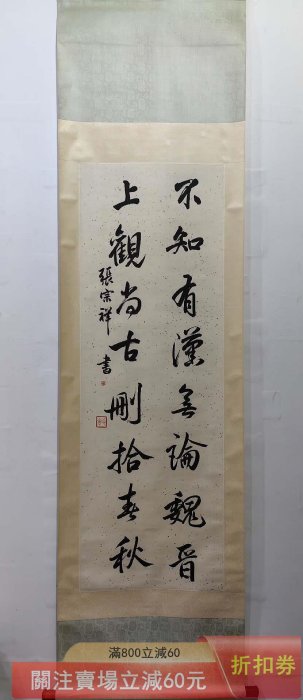 不知有漢無論魏晉
上觀尚古刪拾春秋
張宗祥書
滿800立減60
關注賣場立減60元
折扣券